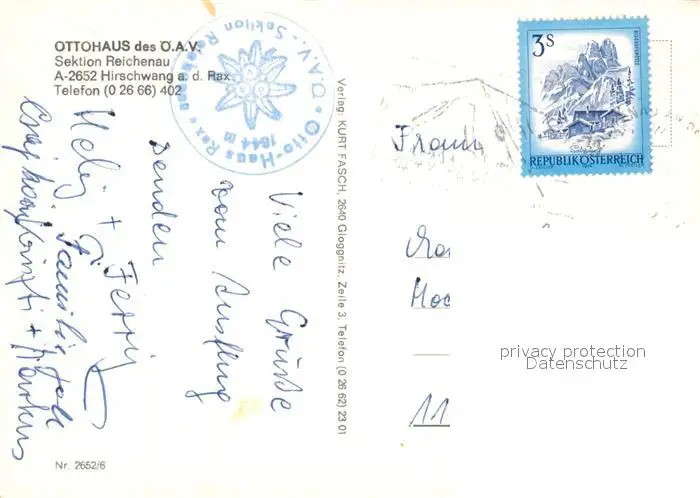 OTTOHAUS des Ö.A.V.
Sektion Reichenau
A-2652 Hirschwang a. d. Rax
Telefon (0 26 66) 402
Ö.A.V. - Sektion Reichenau
Otto-Haus Rax
1644 m
Viele Grüße
vom Ausflug
senden
Helmi + Ferry
Familie
+ Markus
Nr. 2652/6
Verlag: KURT FASCH, 2640 Gloggnitz, Zeile 3, Telefon (0 26 62) 23 01
3 S
BISCHOFSMÜTZE
REPUBLIK ÖSTERREICH
11
privacy protection
Datenschutz